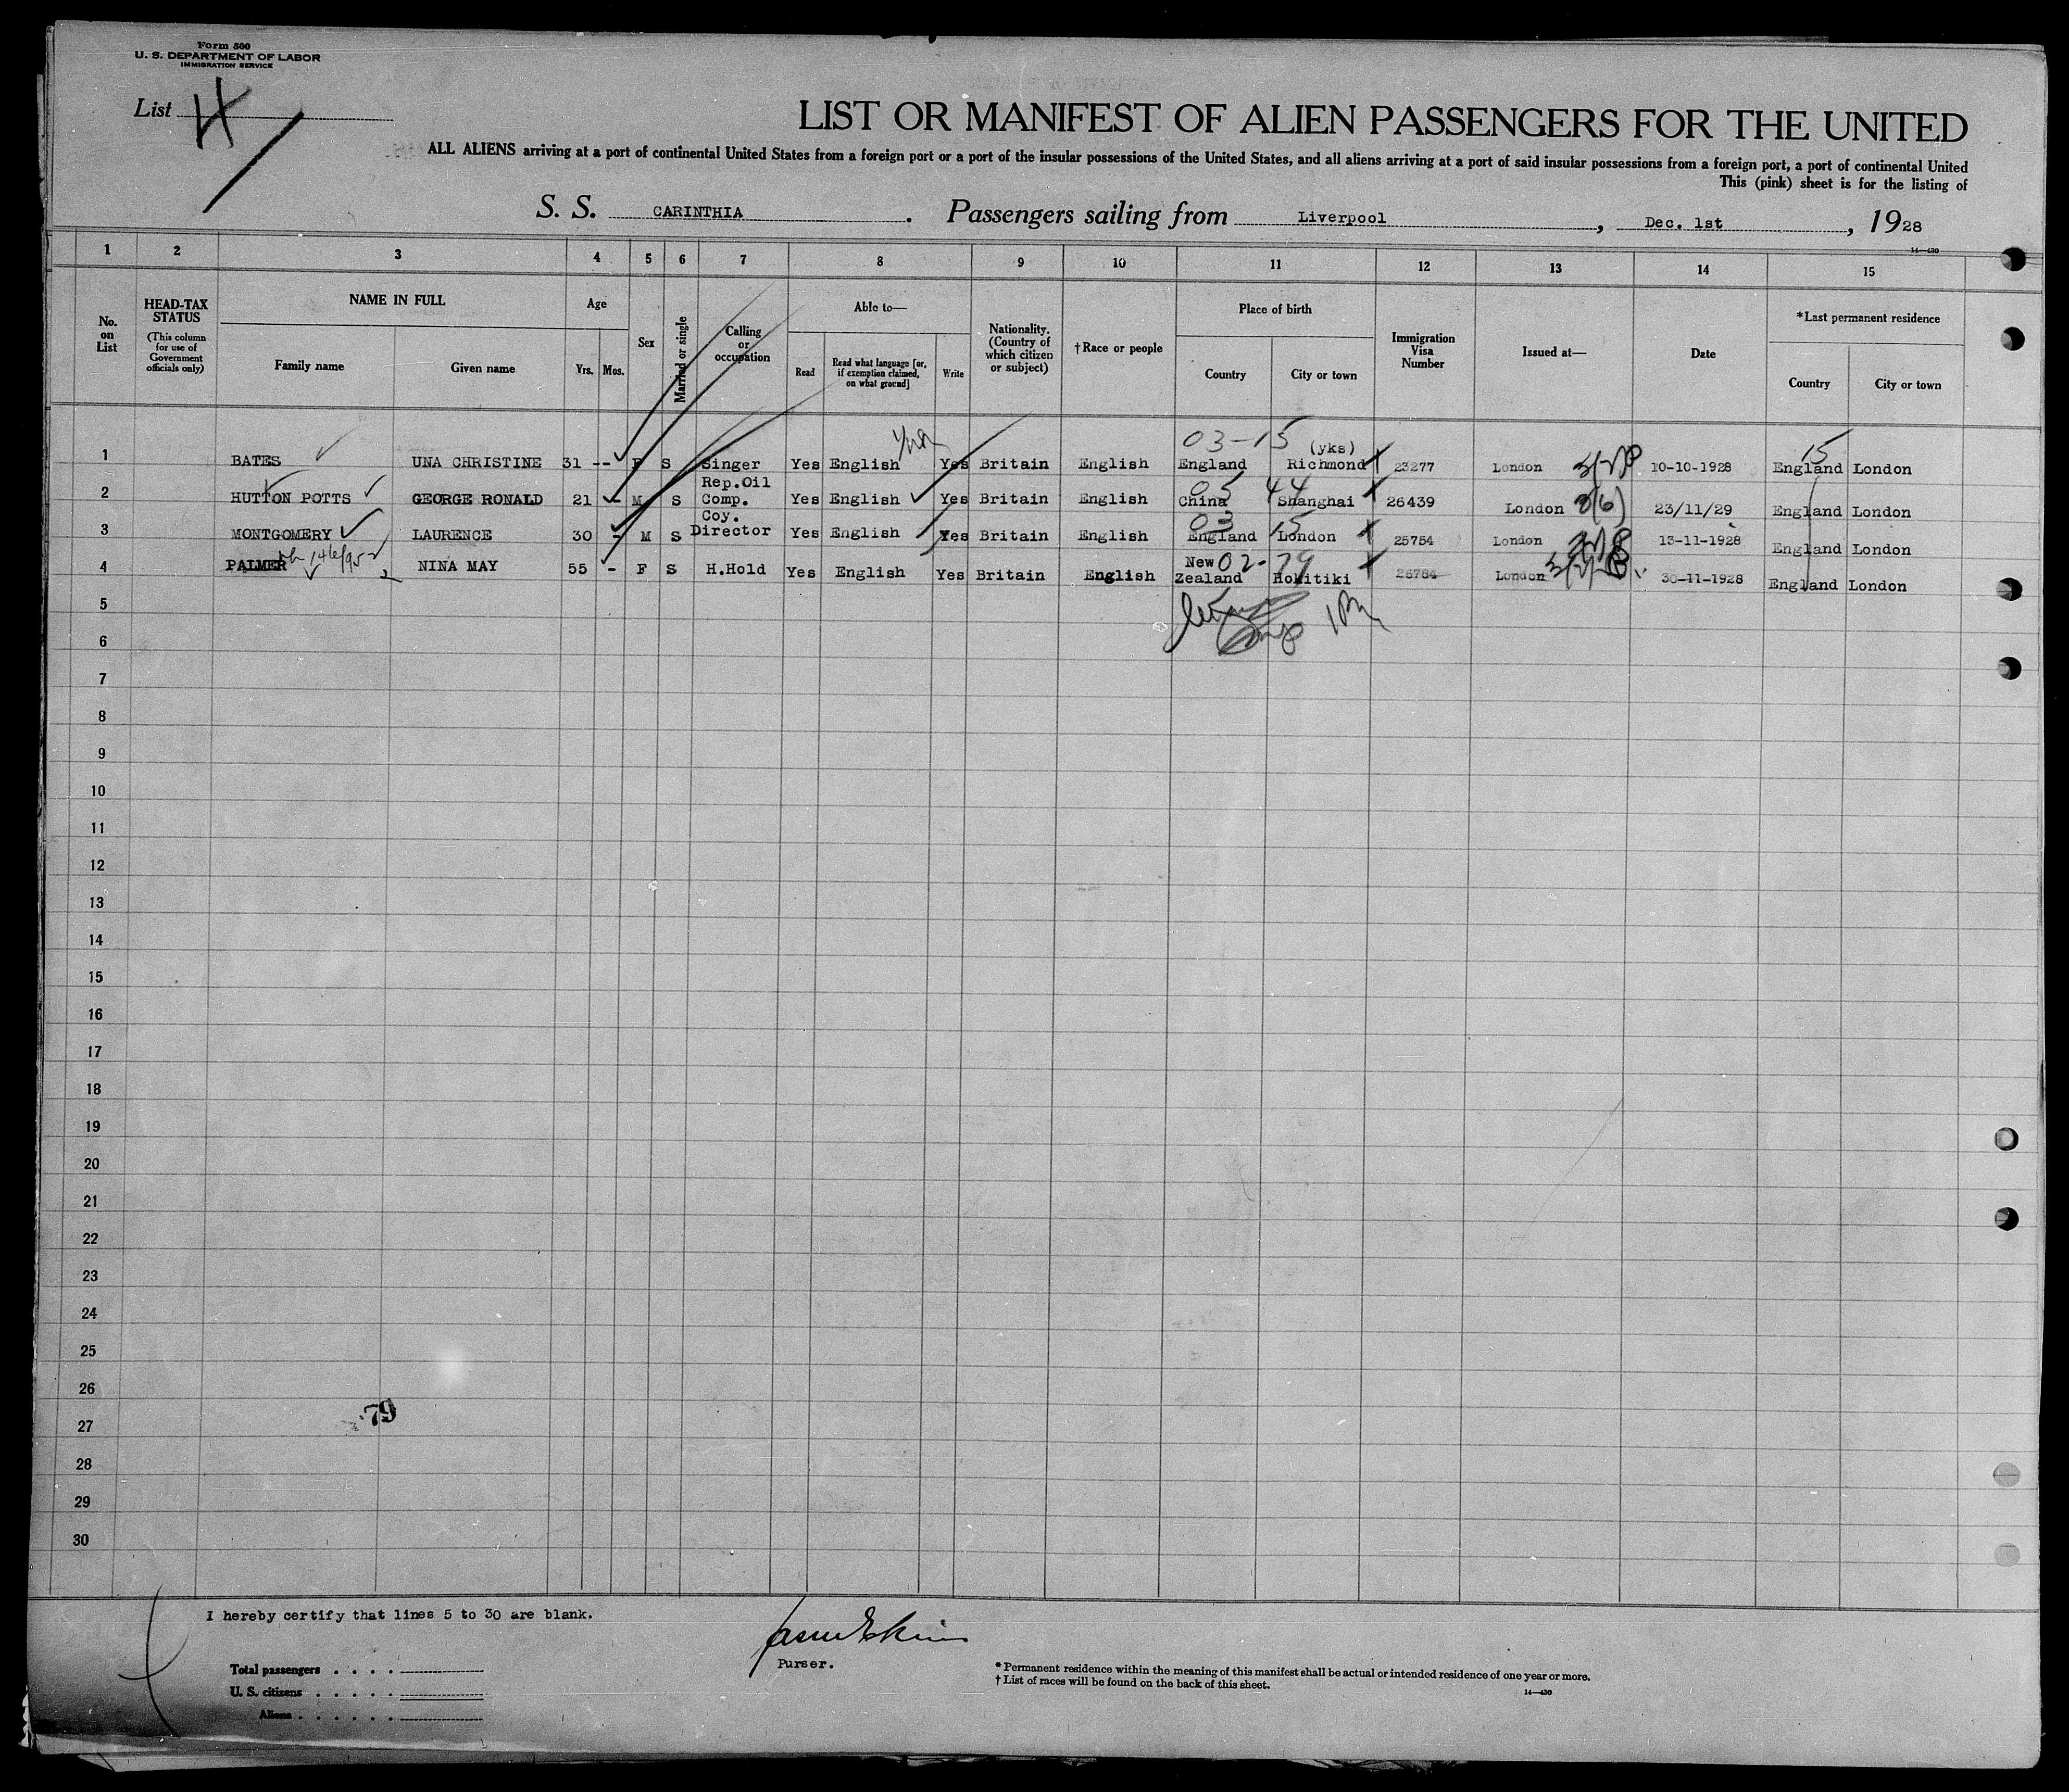 Form 500
U. S. DEPARTMENT OF LABOR
IMMIGRATION SERVICE
List 4
LIST OR MANIFEST OF ALIEN PASSENGERS FOR THE UNITED
ALL ALIENS arriving at a port of continental United States from a foreign port or a port of the insular possessions of the United States, and all aliens arriving at a port of said insular possessions from a foreign port, a port of continental United
This (pink) sheet is for the listing of
S. S. CARINTHIA. Passengers sailing from Liverpool, Dec. 1st, 1928
14—430
1 2 3 4 5 6 7 8 9 10 11 12 13 14 15
No. on List
HEAD-TAX STATUS (This column for use of Government officials only)
NAME IN FULL
Family name
Given name
Age
Yrs. Mos.
Sex
Married or single
Calling or occupation
Able to—
Read
Read what language [or, if exemption claimed, on what ground]
Write
Nationality. (Country of which citizen or subject)
†Race or people
Place of birth
Country
City or town
Immigration Visa Number
Issued at—
Date
*Last permanent residence
Country
City or town
03-15 (yks) 15
1 BATES UNA CHRISTINE 31 -- F S Singer Yes English Yes Britain English England Richmond 23277 London 10-10-1928 England London
Rep.Oil
05 44
2 HUTTON POTTS GEORGE RONALD 21 - M S Comp. Yes English Yes Britain English China Shanghai 26439 London 3(6) 23/11/29 England London
Coy.
03 15
3 MONTGOMERY LAURENCE 30 - M S Director Yes English Yes Britain English England London 25754 London 13-11-1928 England London
New 02-79
4 PALMER NINA MAY 55 - F S H.Hold Yes English Yes Britain English Zealand Hokitiki 26784 London 30-11-1928 England London
5
6
7
8
9
10
11
12
13
14
15
16
17
18
19
20
21
22
23
24
25
26
79
27
28
29
30
I hereby certify that lines 5 to 30 are blank.
Purser.
Total passengers . . . .
U. S. citizens . . . . .
Aliens . . . . . .
* Permanent residence within the meaning of this manifest shall be actual or intended residence of one year or more.
† List of races will be found on the back of this sheet.
14—430